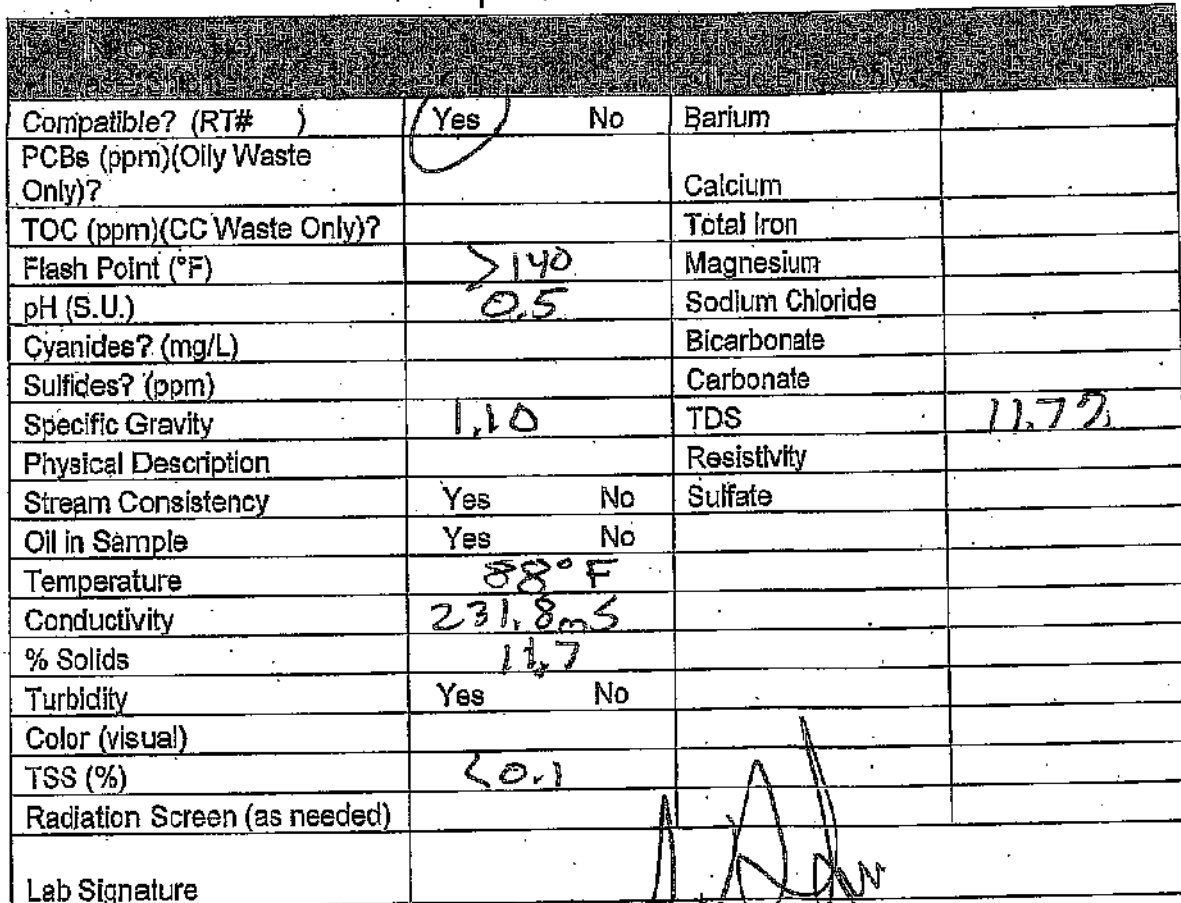 LAB INFORMATION
Compatible? (RT# ) Yes No Barium
PCBs (ppm)(Oily Waste
Only)? Calcium
TOC (ppm)(CC Waste Only)? Total Iron
Flash Point (°F) >140 Magnesium
pH (S.U.) 0.5 Sodium Chloride
Cyanides? (mg/L) Bicarbonate
Sulfides? (ppm) Carbonate
Specific Gravity 1.10 TDS 11.7%
Physical Description Resistivity
Stream Consistency Yes No Sulfate
Oil in Sample Yes No
Temperature 88° F
Conductivity 231.8mS
% Solids 11.7
Turbidity Yes No
Color (visual)
TSS (%) <0.1
Radiation Screen (as needed)
Lab Signature